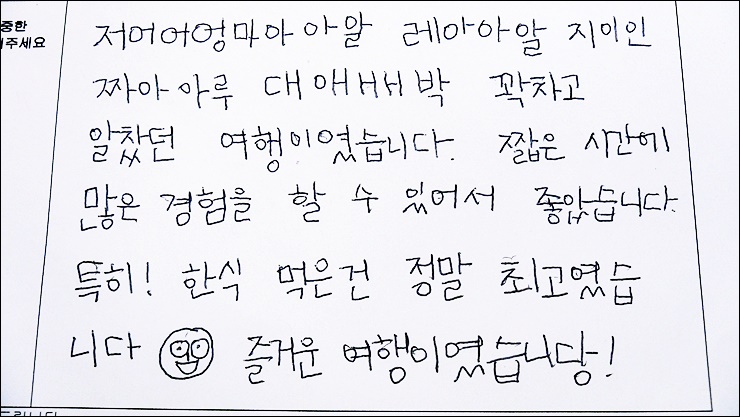 중한
주세요
저어어엉마아아알 레아아알 지이인
짜아아루 대애애박 꽉차고
알찼던 여행이였습니다. 짧은 시간에
많은 경험을 할 수 있어서 좋았습니다.
특히! 한식 먹은건 정말 최고였습
니다 즐거운 여행이였습니당!